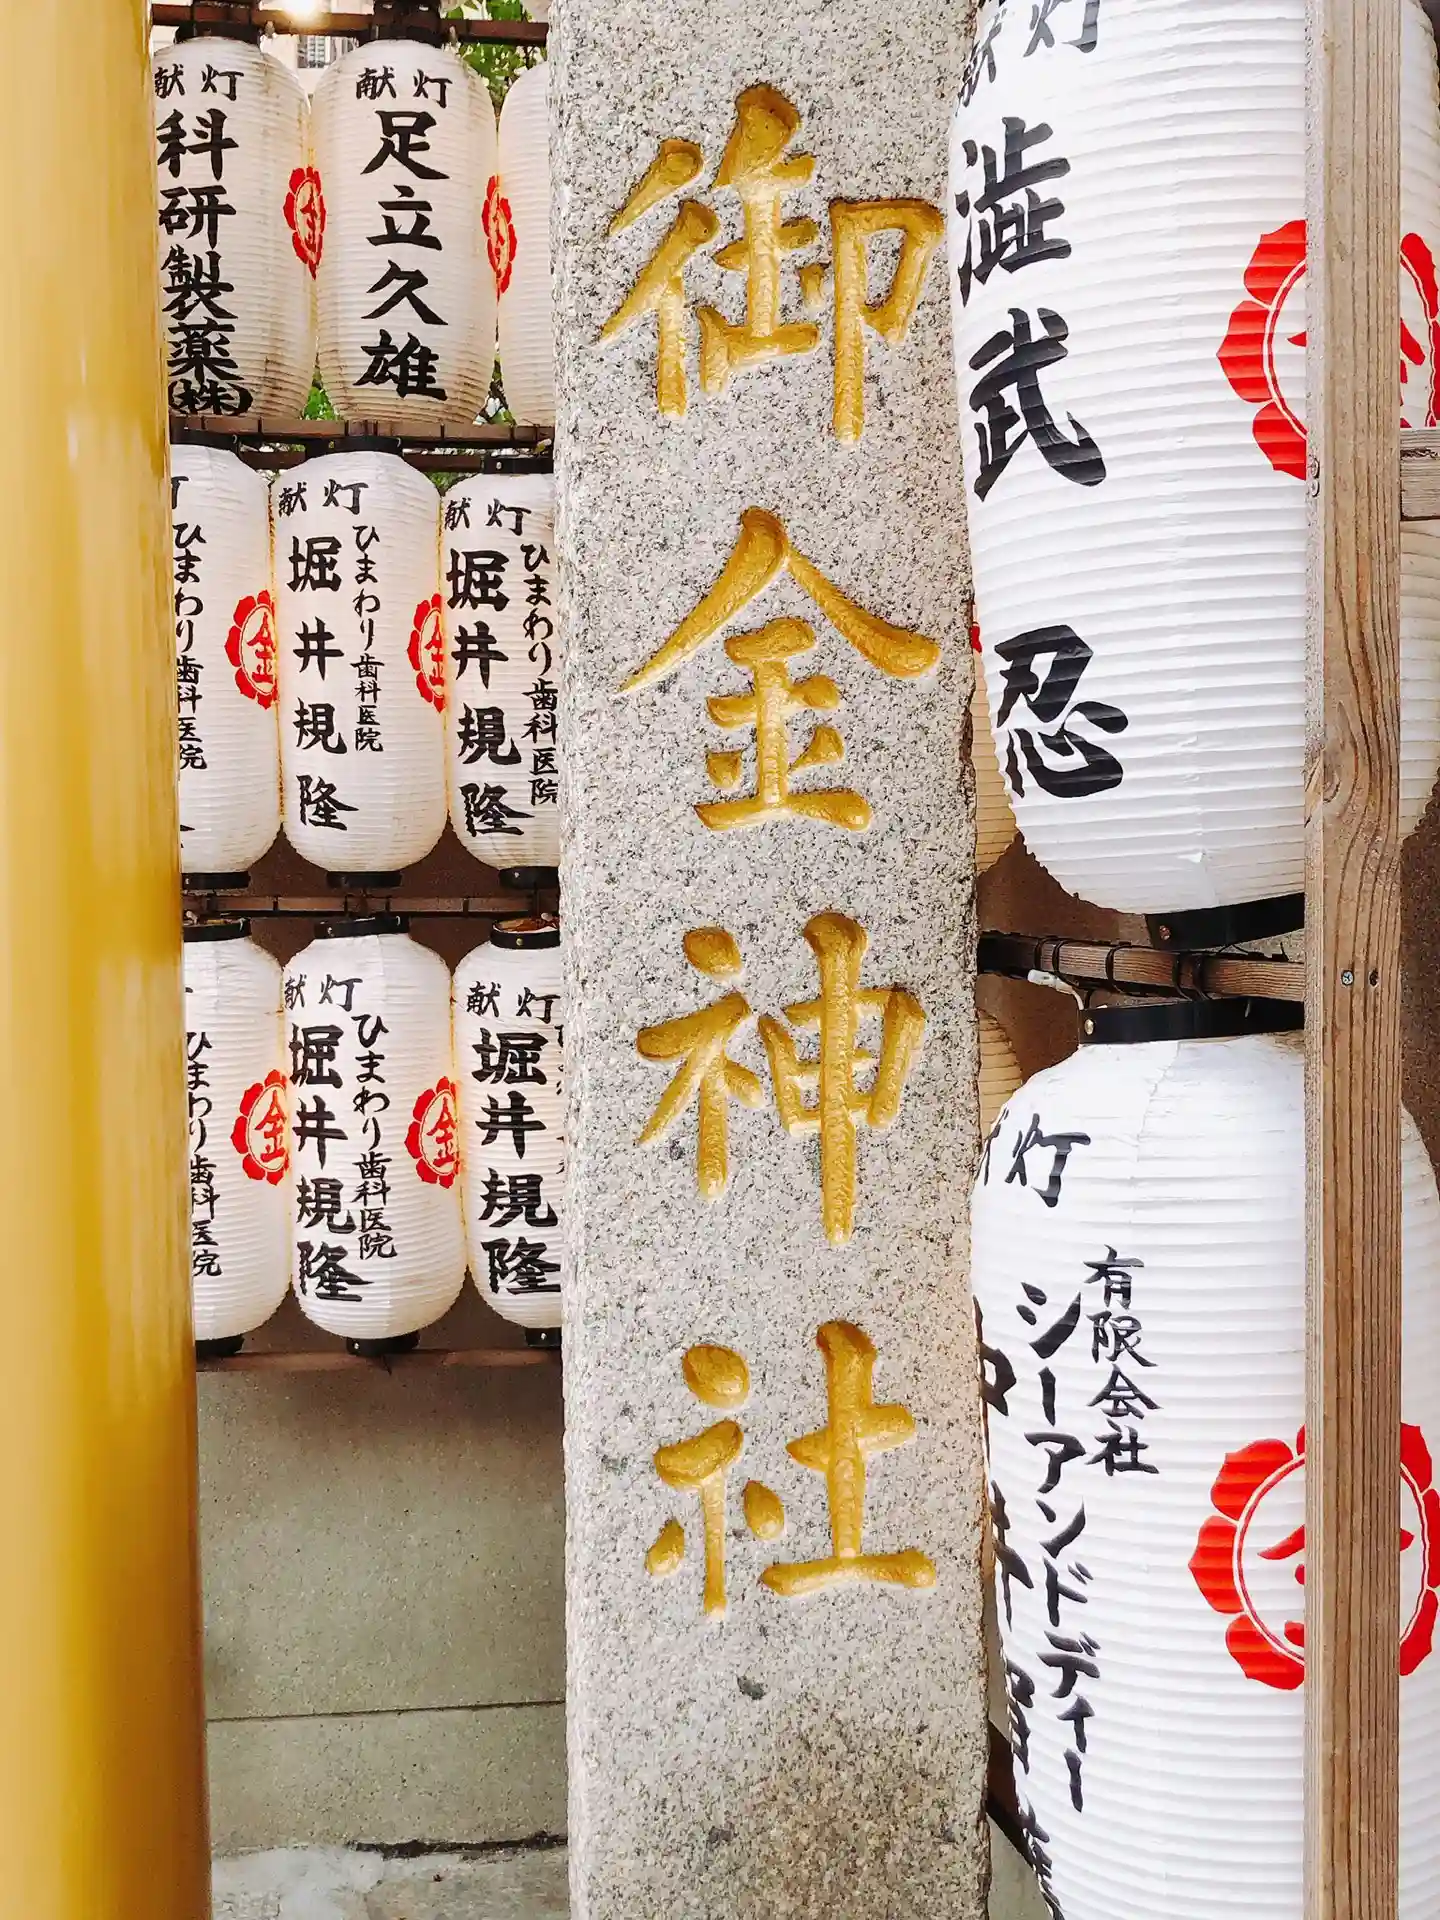 御金神社
献灯
科研製薬㈱
献灯
足立久雄
ひまわり歯科医院
献灯
ひまわり歯科医院
堀井規隆
献灯
ひまわり歯科医院
堀井規隆
ひまわり歯科医院
献灯
ひまわり歯科医院
堀井規隆
献灯
堀井規隆
献灯
澁武忍
灯
有限会社
シーアンドディー
金
金
金
金
金
金